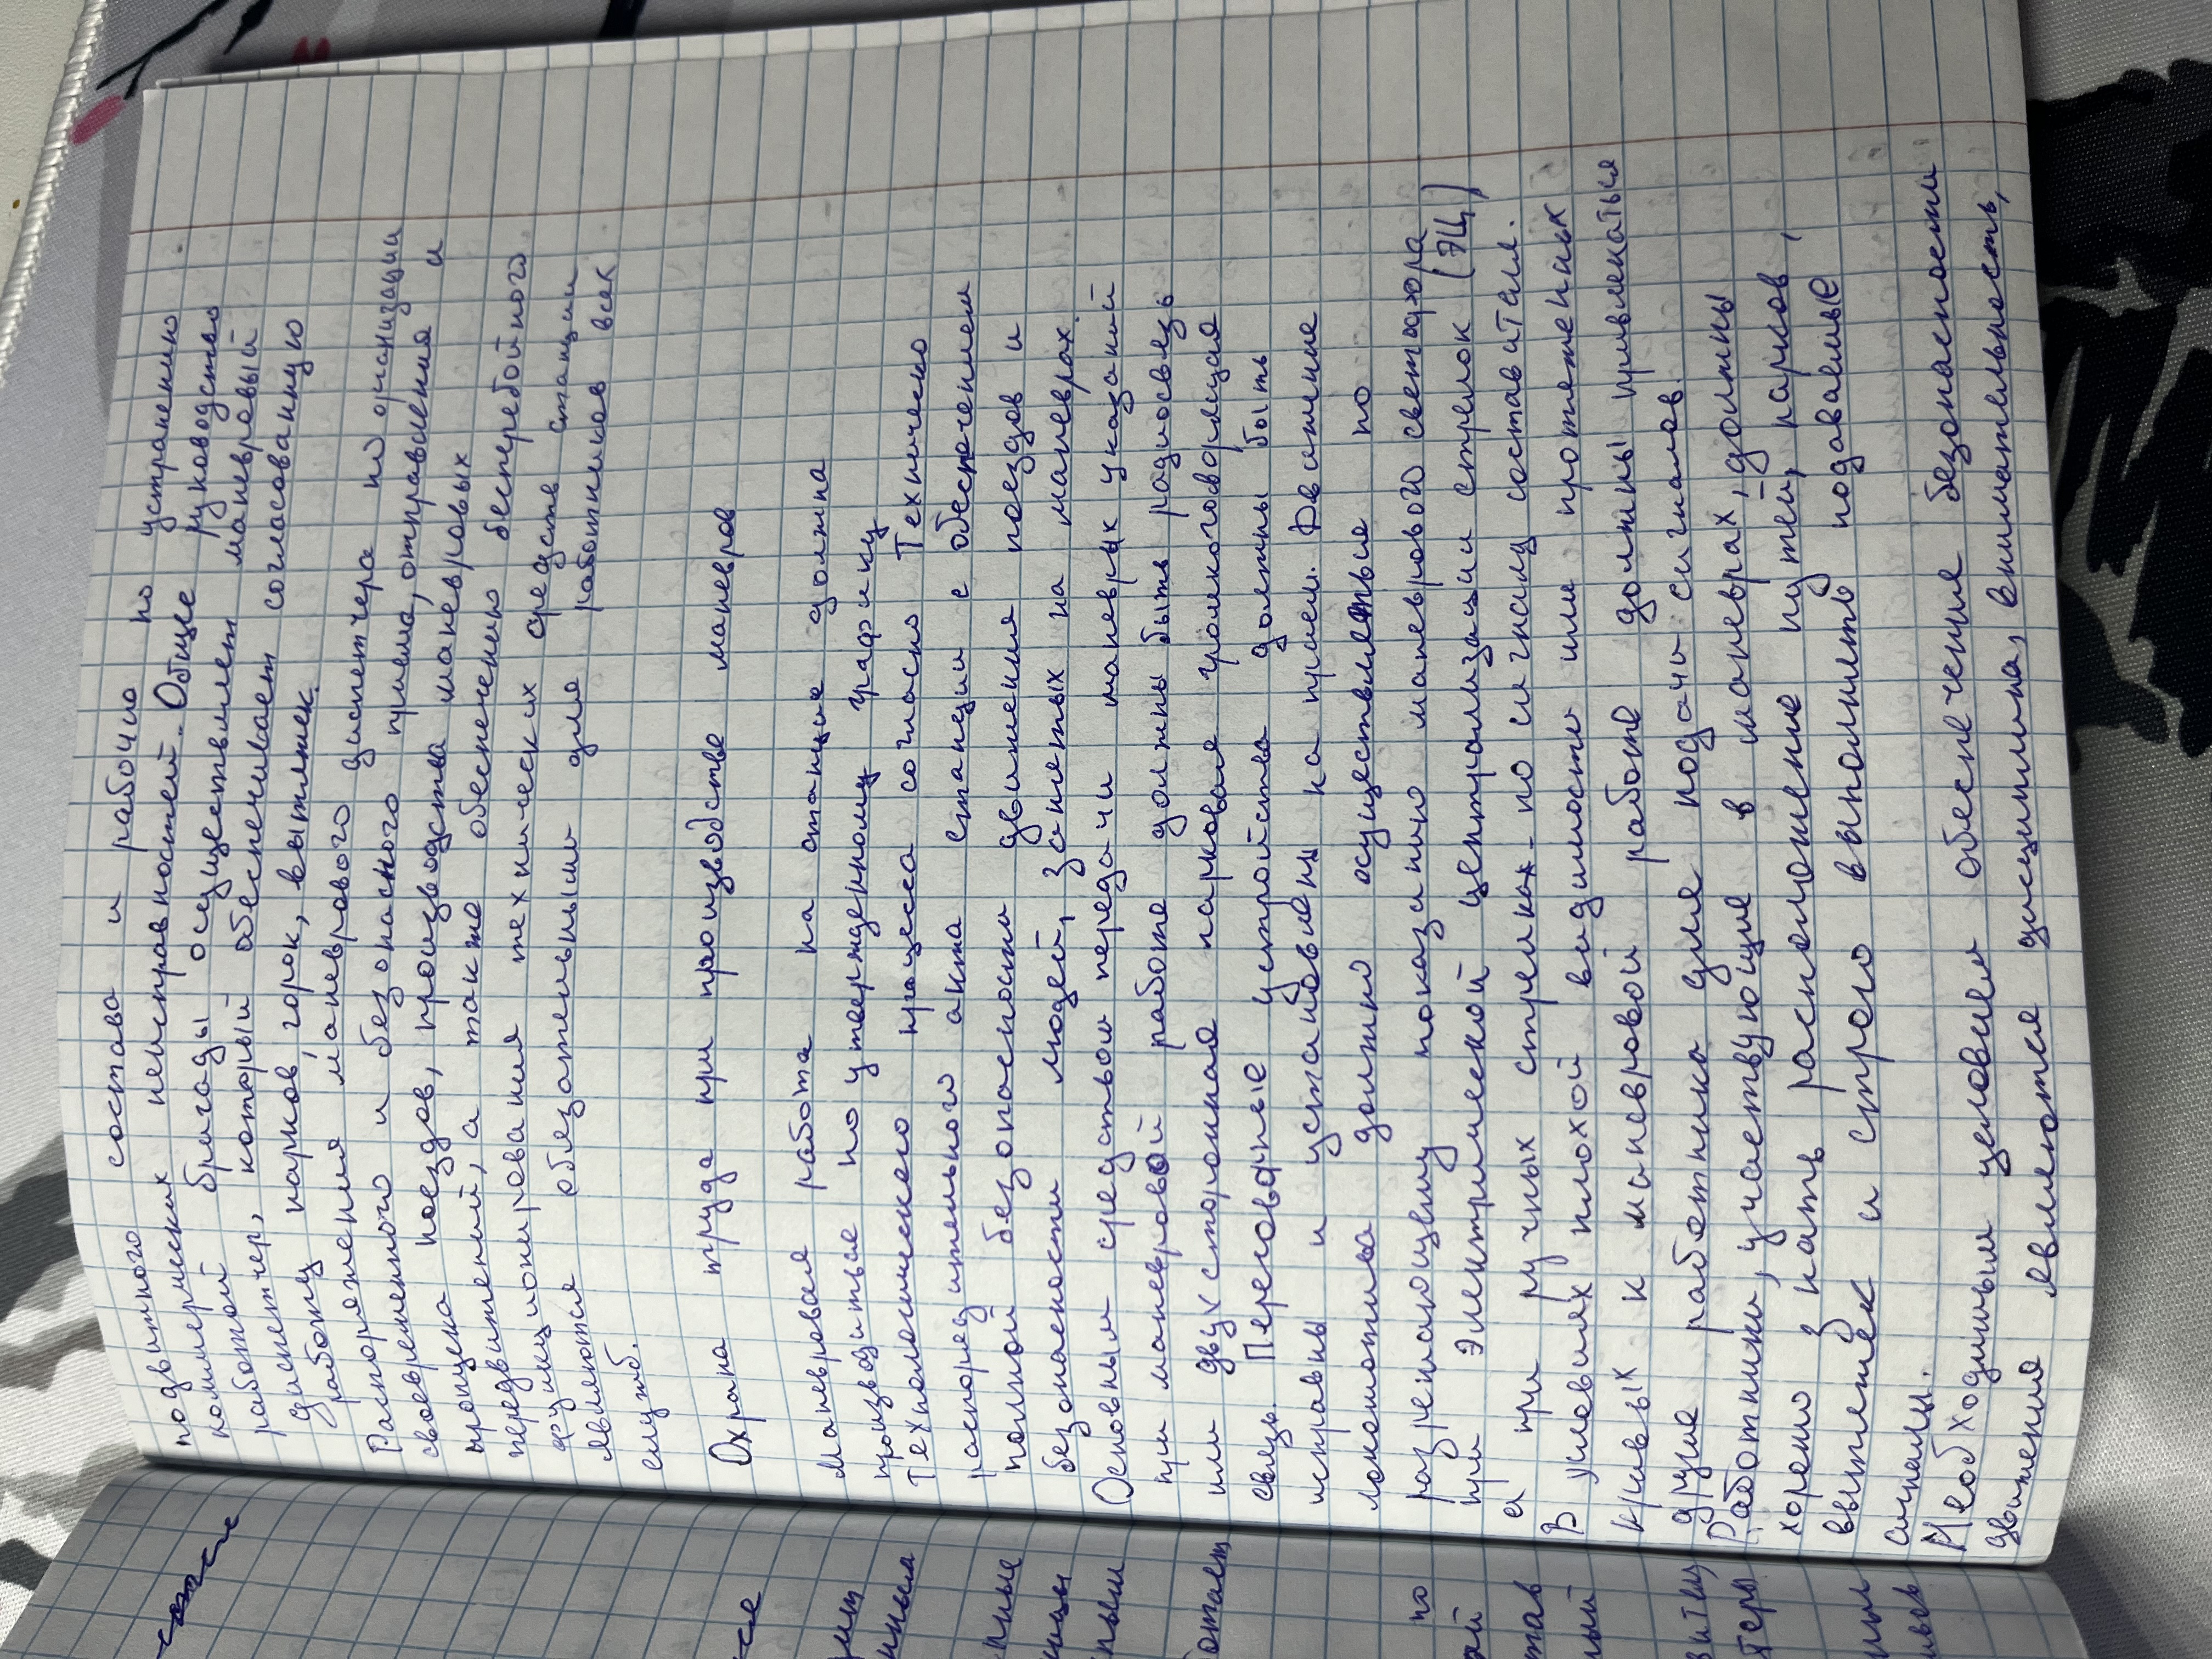 подвижного состава и рабочию по устранению
коммерческих неисправностей. Общее руководство
работой бригады осуществляет маневровый
диспетчер, который обеспечивает согласованную
работу парков, горок, вытяжек.
Распоряжения маневрового диспетчера по организации
своевременного и безопасного приема, отправления и
пропуска поездов, производства маневровых
передвижений, а также обеспечению бесперебойного
функционирования технических средств станции
являются обязательными для работников всех
служб.
Охрана труда при производстве маневров
Маневровая работа на станции должна
производиться по утвержденному графику
Технологического процесса согласно Техническо
распорядительного акта станции с обеспечением
полной безопасности движения поездов и
безопасности людей, занятых на маневрах.
Основным средством передачи маневрых указаний
при маневровой работе должны быть радиосвязь
или двухсторонняя парковая громкоговорящая
связь. Переговорные устройства должны быть
исправны и установлены на прием. Движение
локомотива должно осуществляться по
разрешающему показанию маневрового светофора
при электрической централизации стрелок (ЭЦ)
а при ручных стрелках - по сигналу составителя.
В условиях плохой видимости или протяженных
кривых к маневровой работе должны привлекаться
другие работники для подачи сигналов.
Работники, участвующие в маневрах, должны
хорошо знать расположение путей, парков,
вытяжек и строго выполнять подаваемые
сигналы.
Необходимым условием обеспечение безопасности
движения является дисциплина, внимательность,